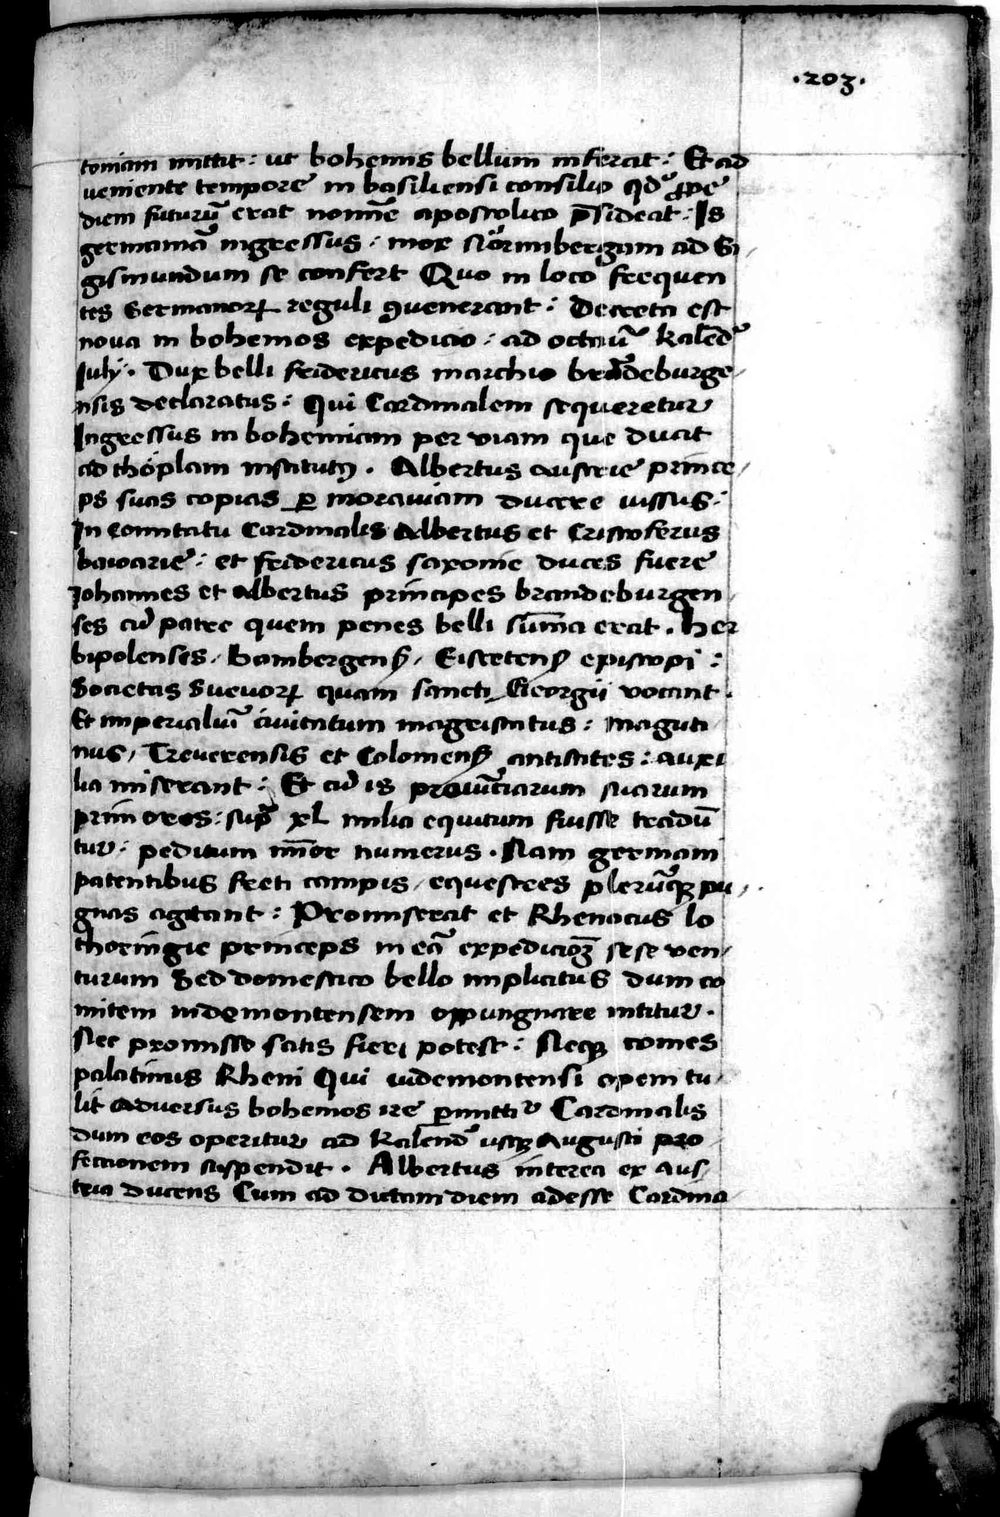 .203.
toniam mittit : ut bohemis bellum inferat : Et ad
veniente tempore in basiliensi consilio qđ ꝓpe
diem futurū erat nomīe apostolico p̄sideat : Is
germaniā ingressus : mox Nŏrimbergam ad Si
gismundum se confert Quo in loco frequen
tes Germanoꝝ reguli ꝯvenerant : Decreta est
nova in bohemos expedicio : ad octauū kalend̄
July . Dux belli fridericus marchio brādeburge
nsis declaratus : Qui Cardinalem sequeretur
Ingressus in bohemiam per viam que ducit
ad thöplam institutꝰ . Albertus austrie prince
ps suas copias ꝑ moraviam ducere iussus :
In Comitatu Cardinalis Albertus et Cristoferus
bawarie : et fridericus saxonie duces fuere
Johannes et albertus principes brandeburgen
ses cū patre quem penes belli sūma erat . her
bipolenses / Bambergenß / Eistetenß episcopi :
Societas Suevoꝝ quam sancti Georgii vocant .
Et imperialiū civitatum magristatus : magūti
nus / Treverensis et Coloniensß antistites : auxi
lia miserant : Et cū is provīciarum suarum
primores : sup̄ xl milia equitum fuisse tradū
tur : peditum mīor numerus . Nam germani
patentibus freti campis / equestres plerūqꝫ pu
gnas agitant : Promiserat et Rhenatus lo
thoringie princeps in eā expedicioꝫ sese ven
turum Sed domestico bello implicitus dum co
mitem videmontensem oppungnare intitur .
Nec promisso satis fieri potest : Neqꝫ comes
palatinus Rheni Qui videmontensi opem tu
lit adversus bohemos ire ꝑmittiᷣ Cardinalis
dum eos operitur ad kalend̄ usqꝫ Augusti pro
fectionem suspendit . Albertus interea ex aus
tria ducens Cum ad dictam diem adesse Cardina